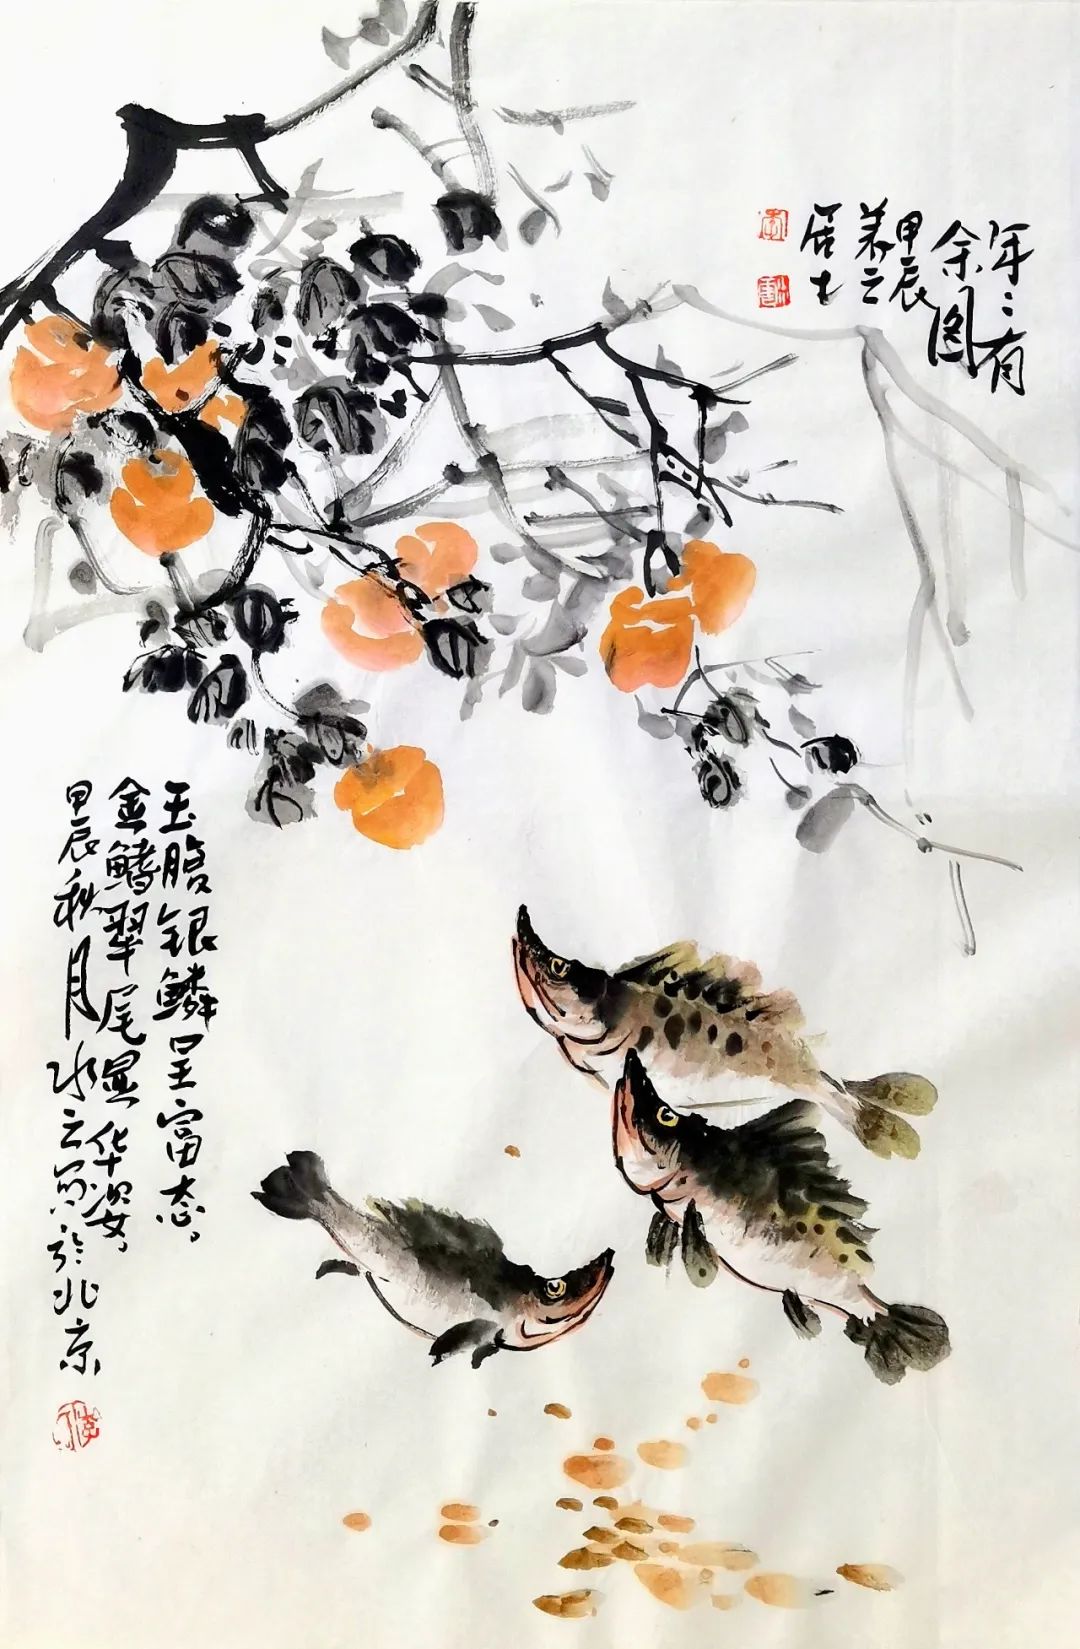 年〻有
余图
甲辰
居士
玉腹银鳞呈富态，
金鳍翠尾显华姿，
甲辰秋月 写於北京